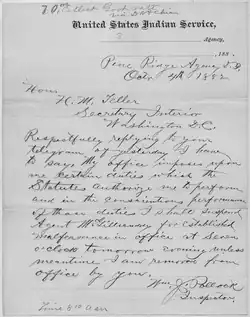 United States Indian Service,
Agency,
188
Pine Ridge Agency, D.T.
Octr 4th 1882
Hon
H. M. Teller
Secretary Interior
Washington D.C.
Respectfully replying to your
telegram of yesterday I have
to say, My office imposes upon
me certain duties which the
Statutes Authorize me to perform
and in the conscientious performance
of those duties I shall suspend
Agent McGillycuddy for established
malfeasance in office at seven
o'clock tomorrow evening unless
meantime I am removed from
office by you.
Wm. J. Pollock
Inspector.